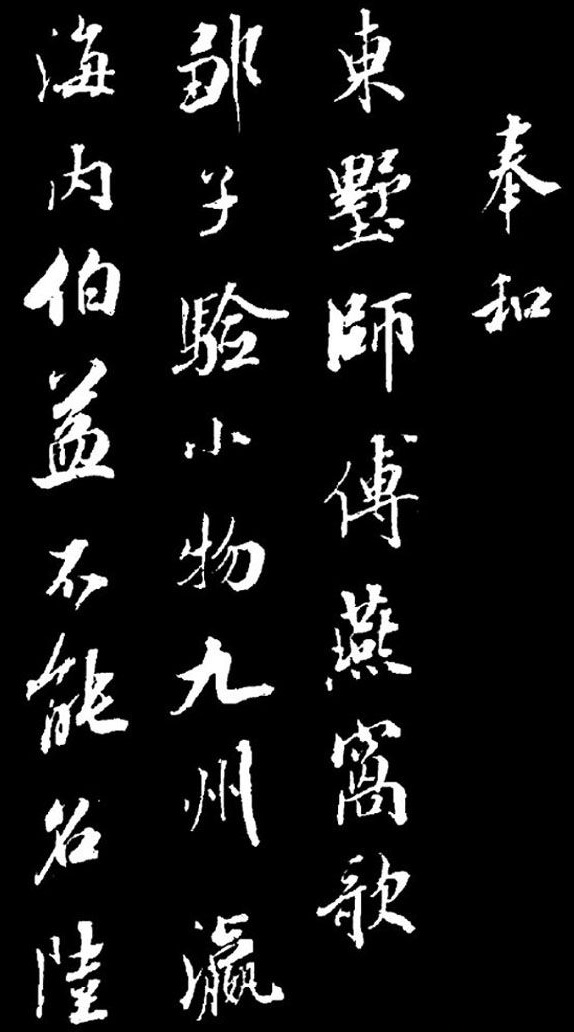 奉和
東墅師傅燕窩歌
鄒子驗小物九州瀛
海内伯益不能名陸